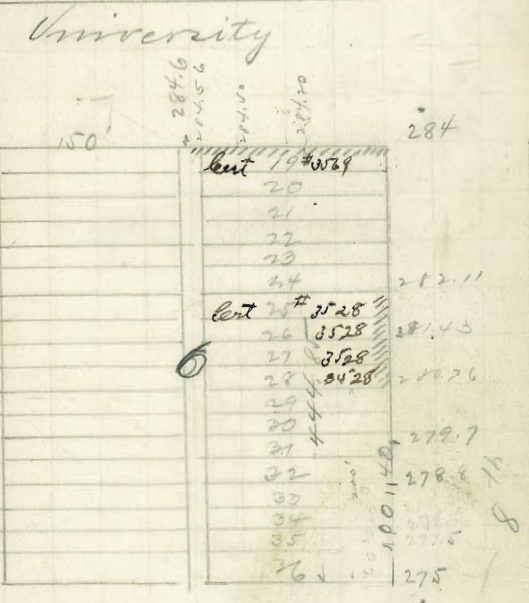 University
284.6
284.56
284.40
284.20
150
284
Cert 19 #3569
20
21
22
23
24 282.11
Cert 25 # 3528
26 3528 281.43
27 3528
6
28 3428 280.76
29
30
31 279.7
32 278.8
33
34
35
36 275